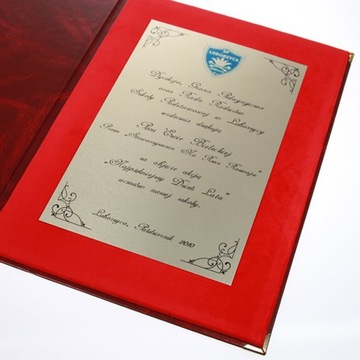 LUBORZYCA
Dyrekcja, Grono Pedagogiczne
oraz Rada Rodziców
Szkoły Podstawowej w Luborzycy
serdecznie dziękują
Pani Ewie
Prezes Stowarzyszenia "Na
za objęcie akcją
"Najpiękniejszy Dzień Lata"
uczniów naszej szkoły.
Luborzyca, Październik 2010